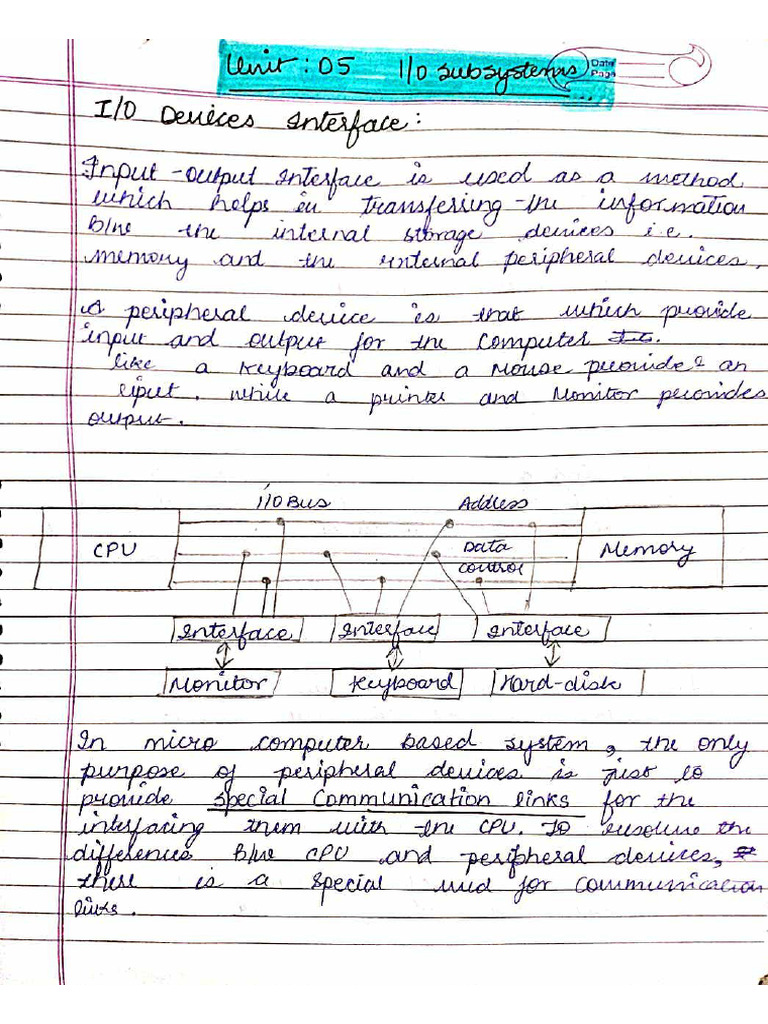 Unit : 05 I/O subsystems
Date
Page
I/O Devices Interface :
Input-output interface is used as a method
which helps in transferring the information
b/w the internal storage devices i.e.
memory and the external peripheral devices.
A peripheral device is that which provide
input and output for the computer
like a keyboard and a Mouse provides an
input. while a printer and Monitor provides
output.
I/O Bus Address
CPU Data Memory
control
Interface Interface Interface
Monitor Keyboard Hard-disk
In micro computer based system, the only
purpose of peripheral devices is just to
provide special communication links for the
interfacing them with the CPU. To resolve the
differences b/w CPU and peripheral devices,
there is a special need for communication
links.